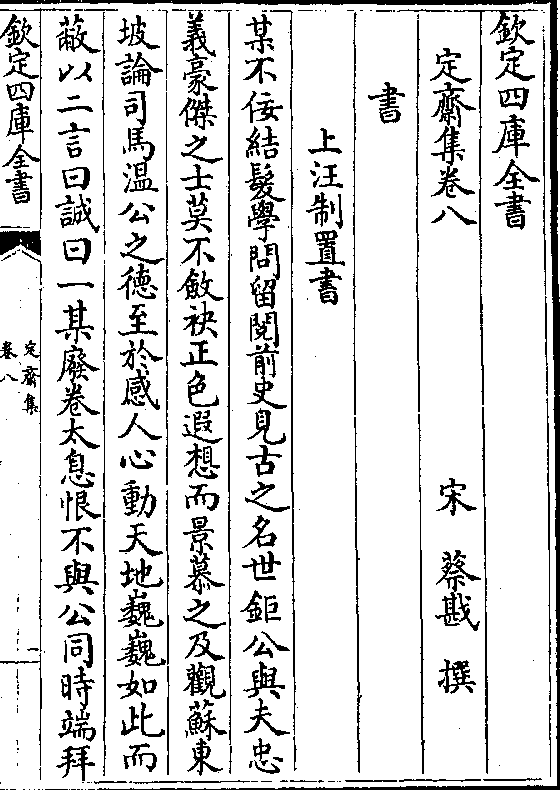 欽定四庫全書
定齋集卷八
宋 蔡戡 撰
書
上汪制置書
某不佞結髮學問留閱前史見古之名世鉅公與夫忠
義豪傑之士莫不斂袂正色遐想而景慕之及觀蘇東
坡論司馬溫公之德至於感人心動天地巍巍如此而
蔽以二言曰誠曰一某廢卷太息恨不與公同時端拜
欽定四庫全書
定齋集
卷八
一